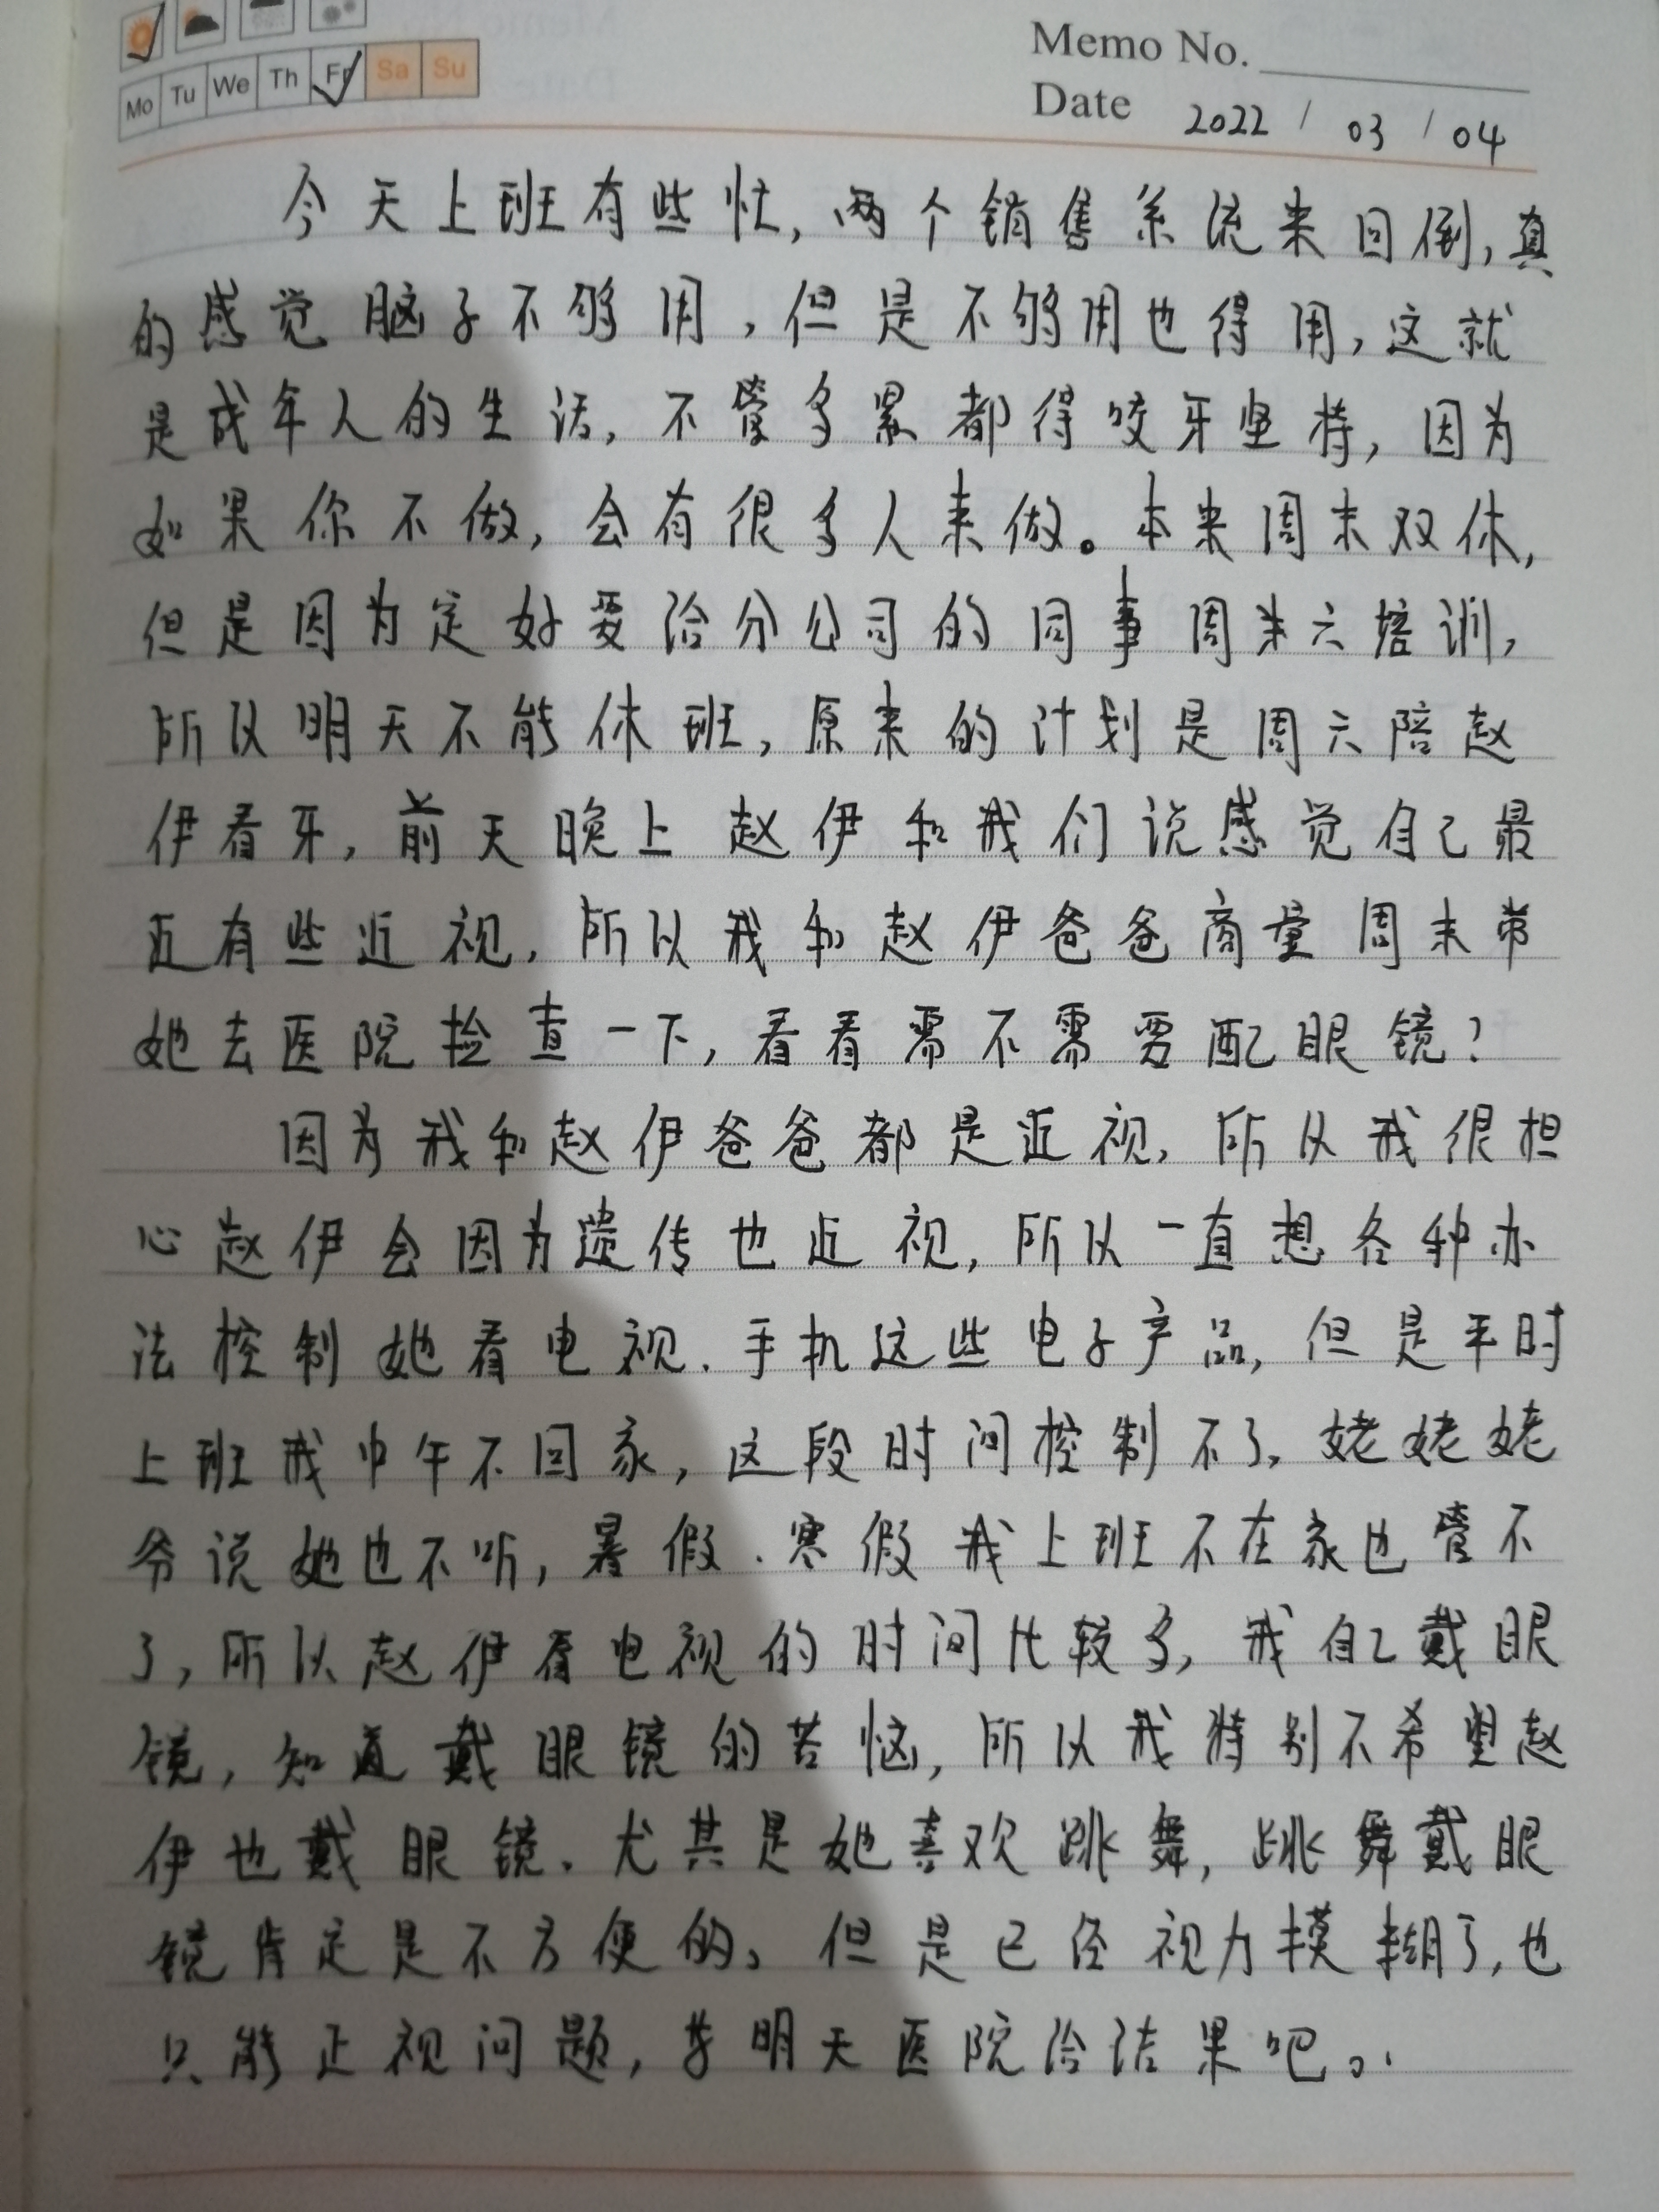 Memo No.
Mo Tu We Th Fr Sa Su
Date 2022 / 03 / 04
今天上班有些忙,两个销售系流来回倒,真
的感觉脑子不够用,但是不够用也得用,这就
是成年人的生活,不管多累都得咬牙坚持,因为
如果你不做,会有很多人来做。本来周末双休,
但是因为定好要给分公司的同事周末六培训,
所以明天不能休班,原来的计划是周六陪赵
伊看牙,前天晚上赵伊和我们说感觉自己最
近有些近视,所以我和赵伊爸爸商量周末带
她去医院捡查一下,看看需不需要配眼镜?
因为我和赵伊爸爸都是近视,所以我很担
心赵伊会因为遗传也近视,所以一直想各种办
法控制她看电视、手机这些电子产品,但是平时
上班我中午不回家,这段时间控制不了,姥姥姥
爷说她也不听,暑假、寒假我上班不在家也管不
了,所以赵伊看电视的时间比较多,我自己戴眼
镜,知道戴眼镜的苦恼,所以我特别不希望赵
伊也戴眼镜,尤其是她喜欢跳舞,跳舞戴眼
镜肯定是不方便的。但是已经视力模糊了,也
只能正视问题,等明天医院给结果吧。